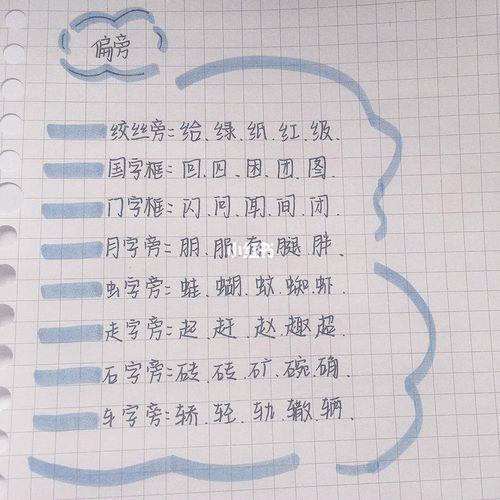 偏旁
绞丝旁:给、绿、纸、红、级、
国字框:回、囚、困、团、图、
门字框:闪、问、闻、间、闭、
月字旁:朋、服、腿、胖、
小红书
虫字旁:蛙、蝴、蚊、蜘、虾、
走字旁:起、赶、赵、趣、超、
石字旁:砖、砖、矿、碗、确、
车字旁:轿、轻、轨、辙、辆、